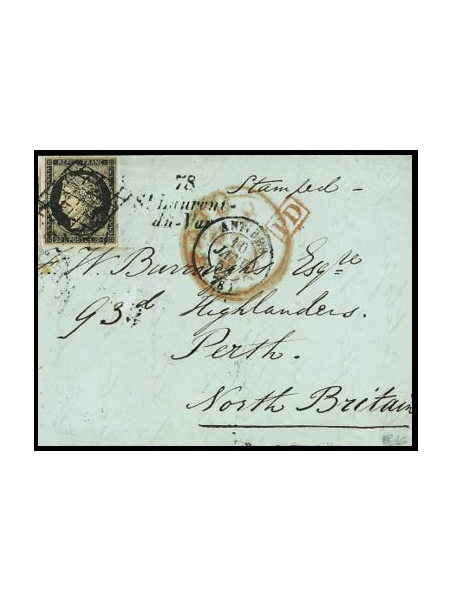 REPUB. FRANC.
78
St Laurent-
du-Var
Stamped -
PD
ANTIBES
10
(78)
F. W. Burroughs Esqre
93d Highlanders.
Perth.
North Britain